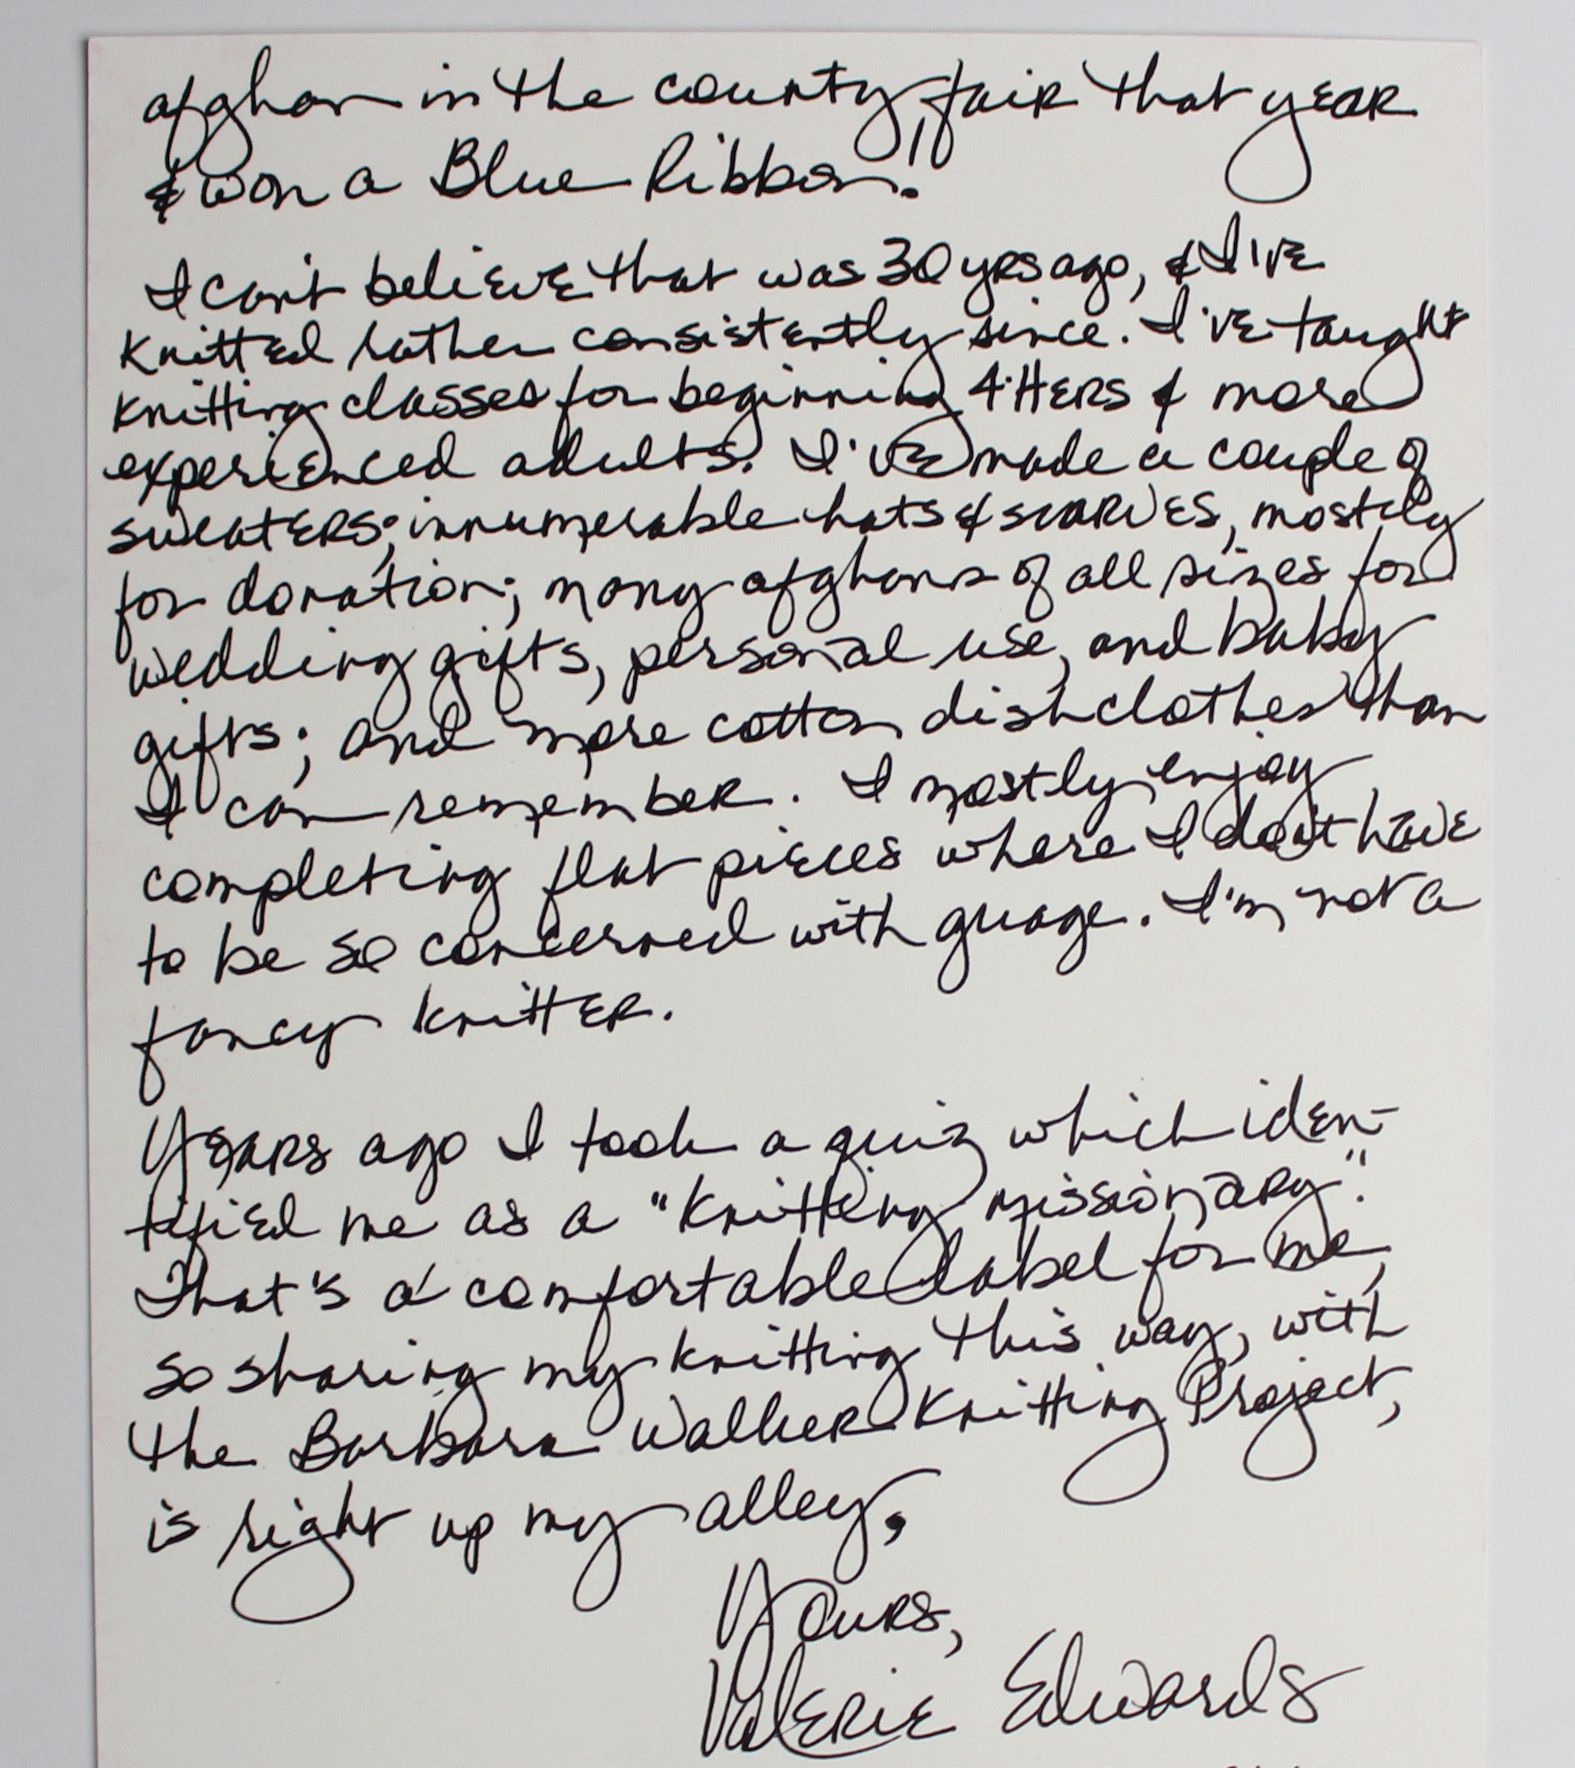 afghan in the county fair that year
& won a Blue Ribbon!
I can't believe that was 30 yrs ago, & I've
knitted rather consistently since. I've taught
knitting classes for beginning 4-Hers & more
experienced adults. I've made a couple of
sweaters; innumerable hats & scarves, mostly
for donation; many afghans of all sizes for
wedding gifts, personal use, and baby
gifts; and more cotton dishclothes than
I can remember. I mostly enjoy
completing flat pieces where I don't have
to be so concerned with guage. I'm not a
fancy knitter.
Years ago I took a quiz which iden-
tified me as a "Knitting missionary".
That's a comfortable label for me,
so sharing my knitting this way, with
the Barbara Walker Knitting Project,
is right up my alley.
Yours,
Valerie Edwards